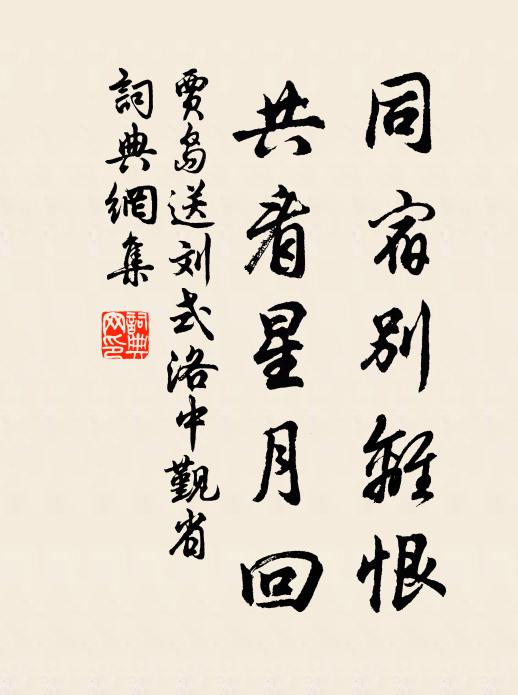 同宿别離恨
共看星月回
賈島送刘式洛中觐省
詞典網集
詞典網印